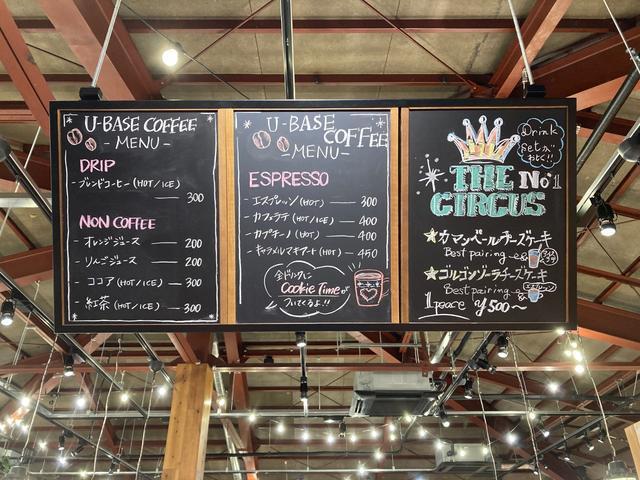 U-BASE COFFEE
- MENU -
DRIP
- ブレンドコーヒー (HOT/ICE)
— 300
NON COFFEE
- オレンジジュース — 200
- りんごジュース — 200
- ココア (HOT/ICE) — 300
- 紅茶 (HOT/ICE) — 300
U-BASE
COFFEE
- MENU -
ESPRESSO
- エスプレッソ (HOT) — 300
- カフェラテ (HOT/ICE) — 400
- カプチーノ (HOT) — 400
- キャラメルマキアート (HOT) — 450
全ドリンクに
Cookie Time が
ついてくるよ!!
Drink
setが
おとく!!
THE No.1
CIRCUS
カマンベールチーズケーキ
Best pairing
ゴルゴンゾーラチーズケーキ
Best pairing
1peace ¥500〜